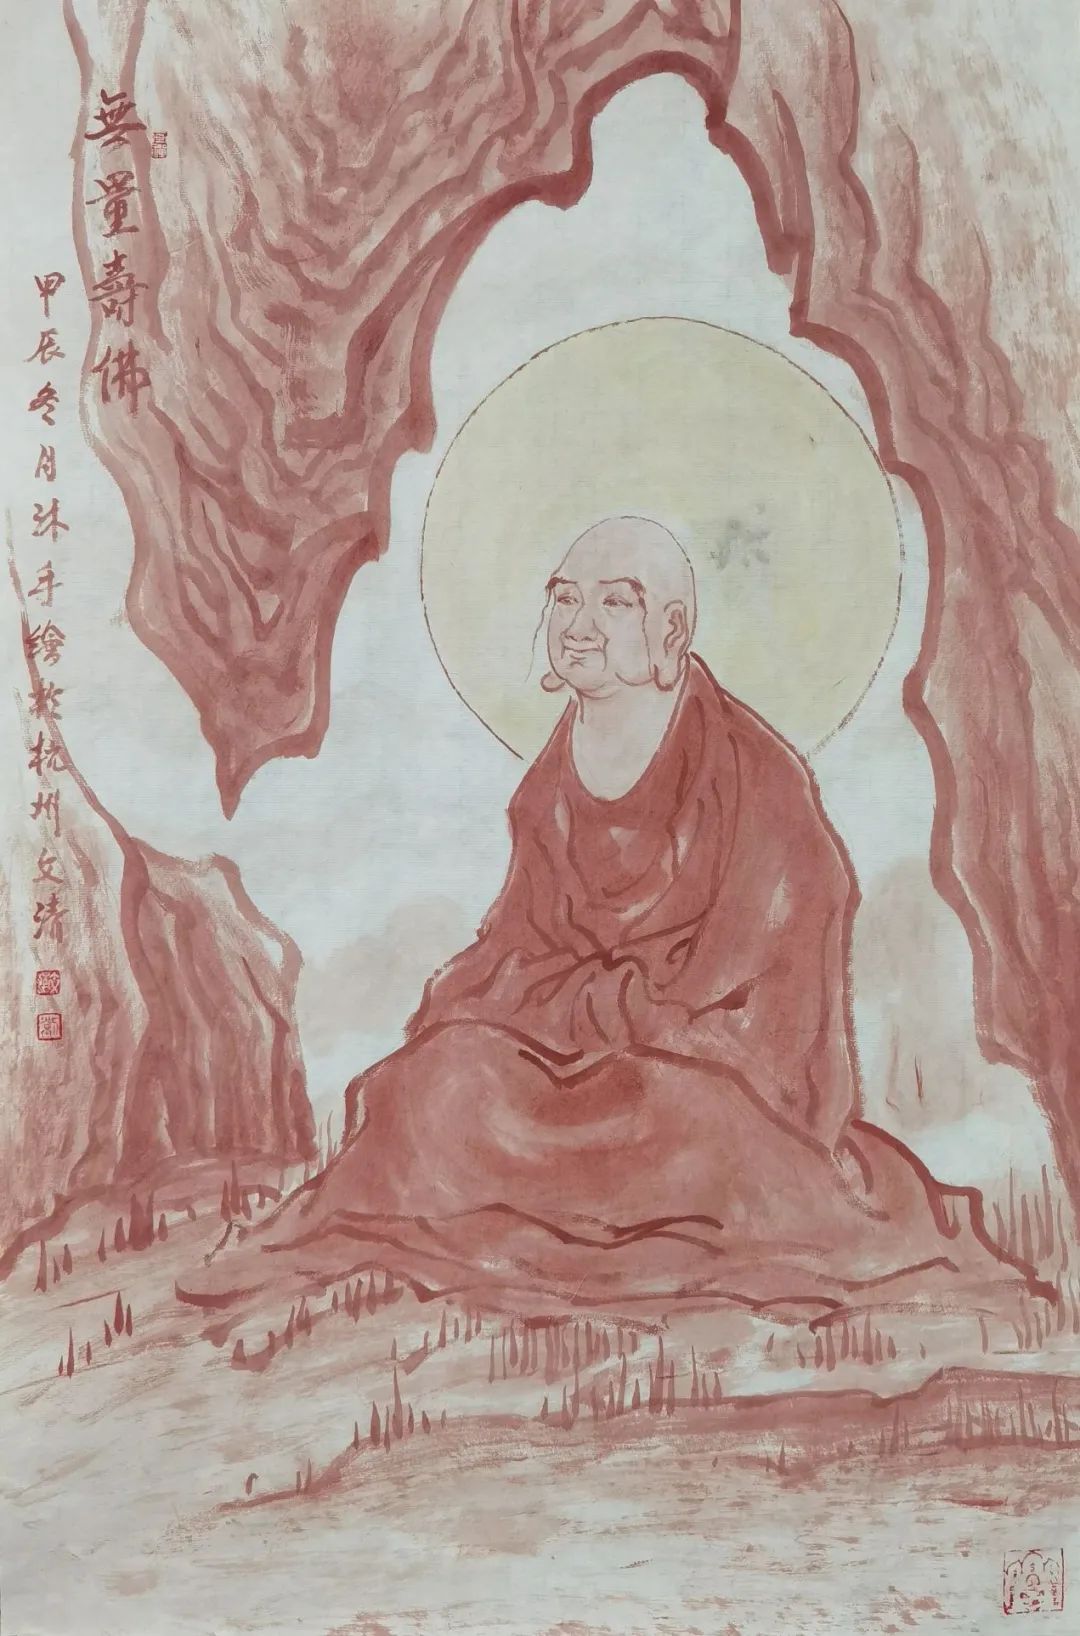 無量壽佛
甲辰冬月沐手繪於杭州文清